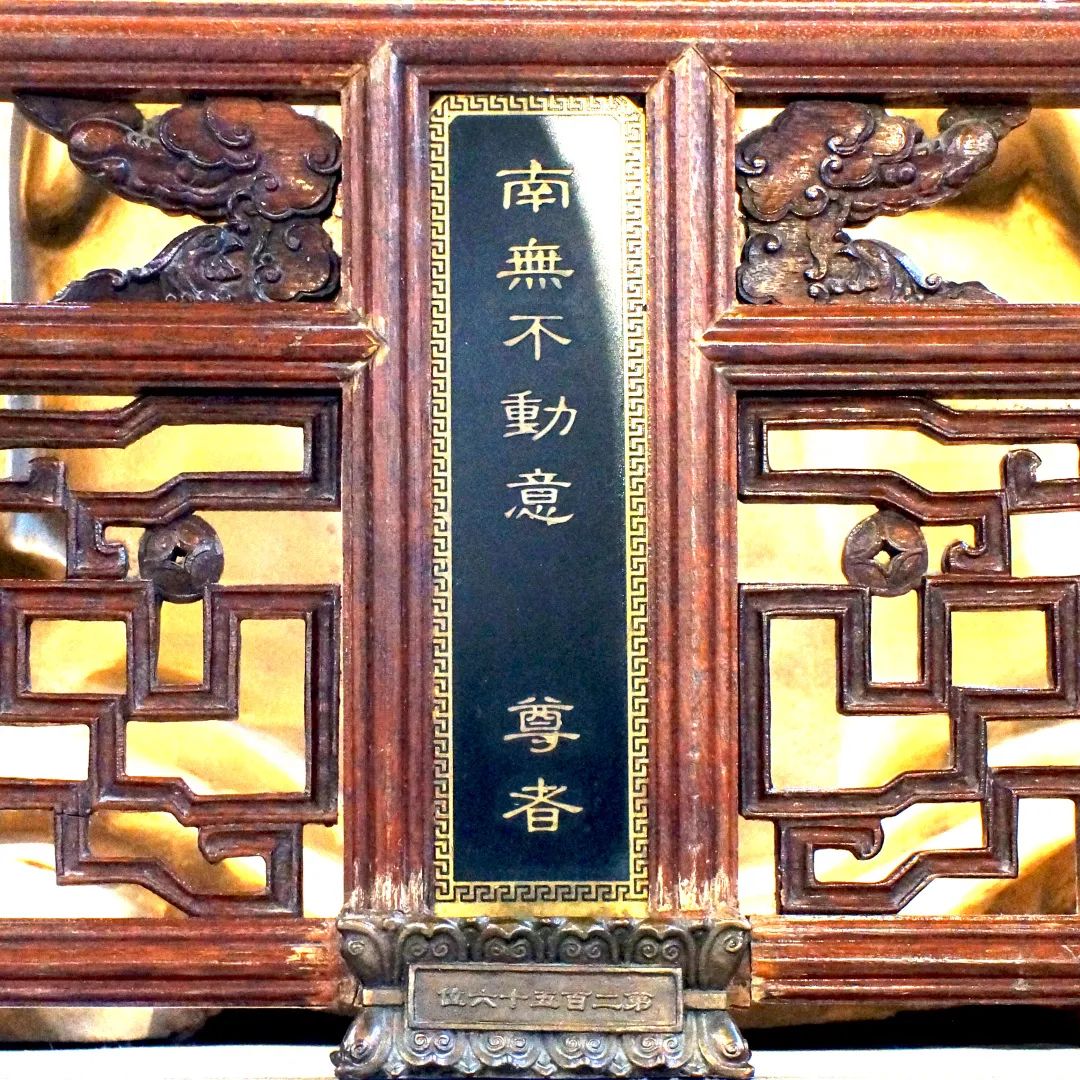 南無不動意 尊者
第二百五十六位